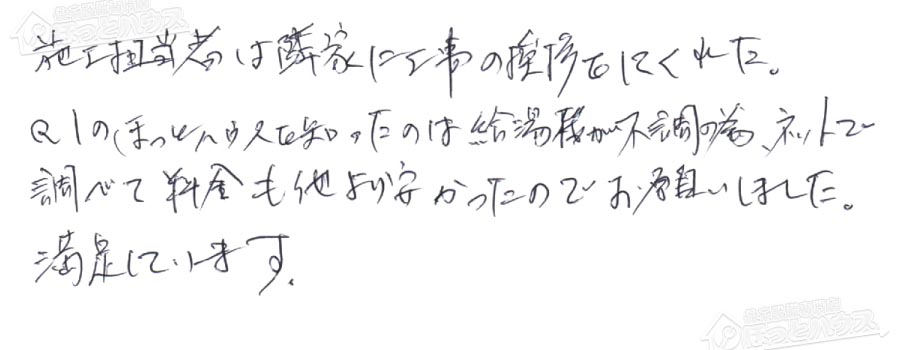 施工担当者は隣家に工事の挨拶をしてくれた。
Q1のほっとハウスを知ったのは給湯機が不調の為、ネットで
調べて料金も他より安かったのでお願いしました。
満足しています。
ほっとハウス
ほっとハウス